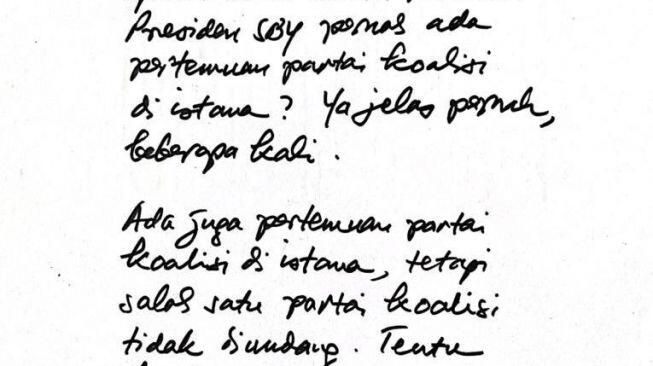 Presiden SBY pernah ada
pertemuan partai koalisi
di istana? Ya jelas pernah,
beberapa kali.
Ada juga pertemuan partai
koalisi di istana, tetapi
salah satu partai koalisi
tidak diundang. Tentu